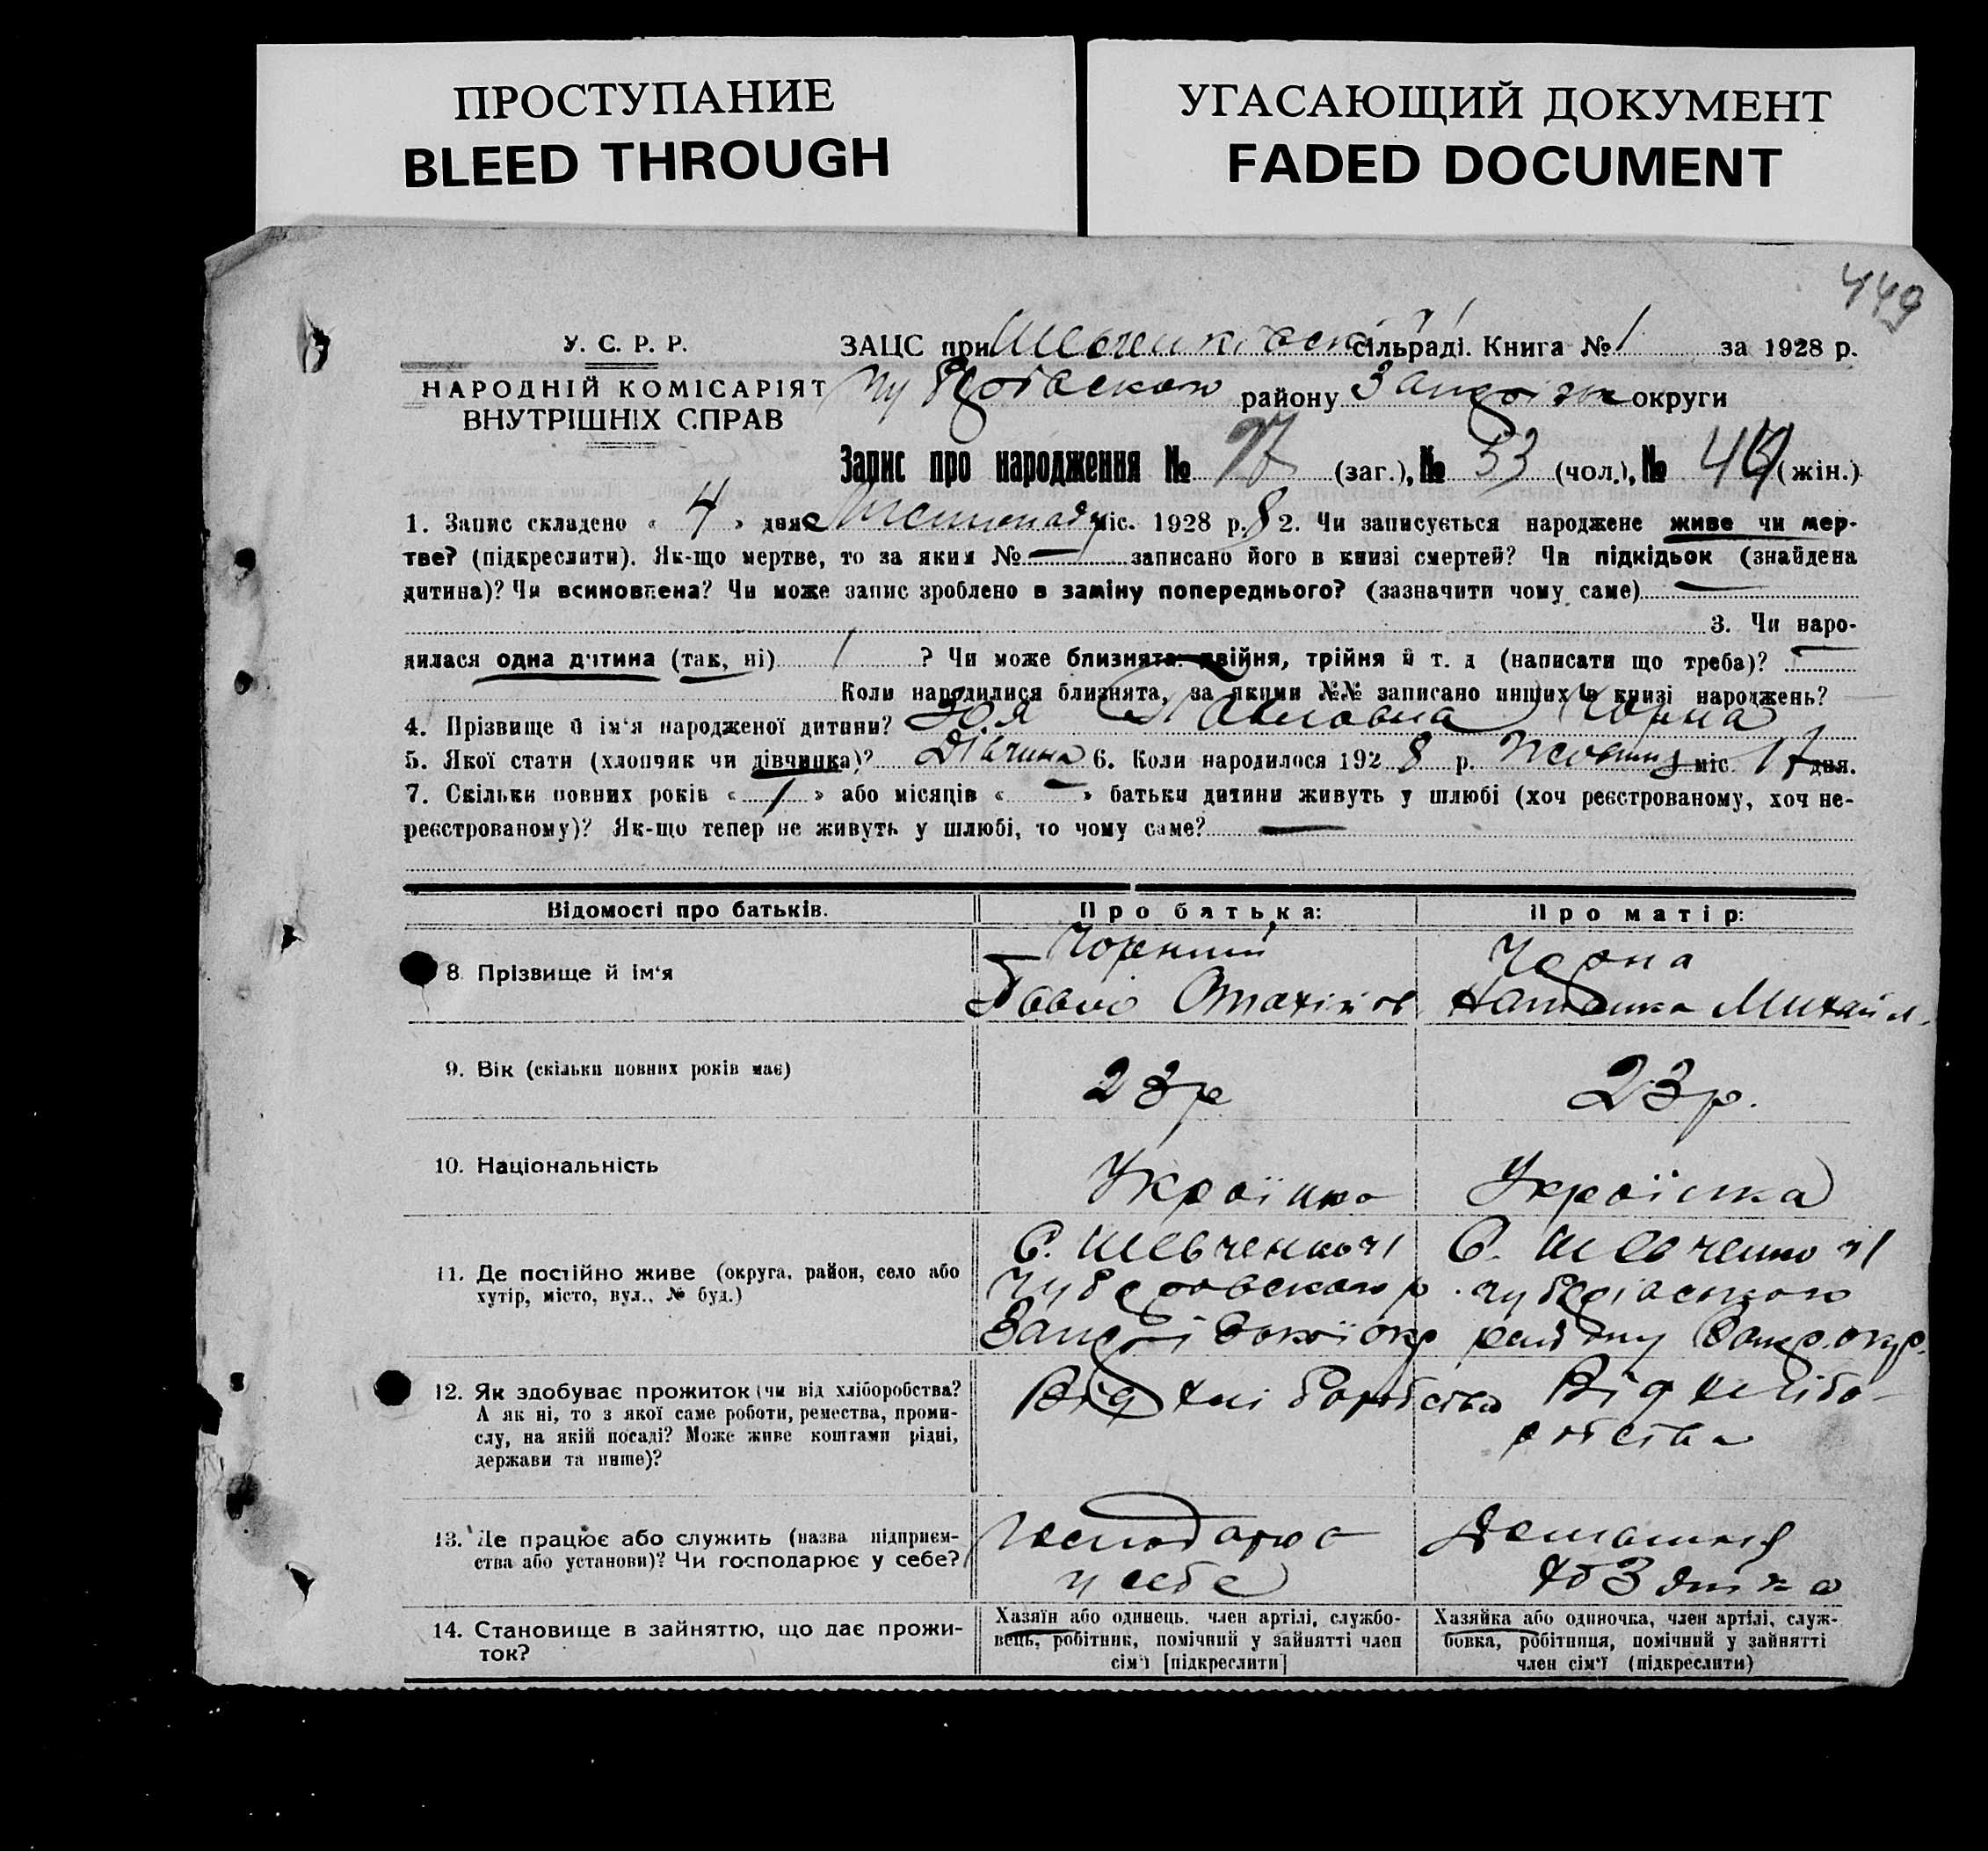 ПРОСТУПАНИЕ
BLEED THROUGH
УГАСАЮЩИЙ ДОКУМЕНТ
FADED DOCUMENT
449
У. С. Р. Р.
НАРОДНІЙ КОМІСАРІЯТ
ВНУТРІШНІХ СПРАВ
ЗАЦС при Шевченківській сільраді. Книга № 1 за 1928 р.
району округи
Запис про народження № 97 (заг.), № 53 (чол.), № 44 (жін.)
1. Запис складено « 4 » дня Листопаду міс. 1928 р. 2. Чи записується народжене живе чи мер-
тве? (підкреслити). Як-що мертве, то за яким № — записано його в книзі смертей? Чи підкідьок (знайдена
дитина)? Чи всиновлена? Чи може запис зроблено в заміну попереднього? (зазначити чому саме) —
3. Чи наро-
дилася одна дитина (так, ні) 1 ? Чи може близнята: двійня, трійня й т. д (написати що треба)? —
Коли народилися близнята, за якими №№ записано инших в книзі народжень?
4. Прізвище й ім'я народженої дитини? Зоя Павловна Чорна
5. Якої стати (хлопчик чи дівчинка)? Дівчина 6. Коли народилося 1928 р. Жовтня міс. 17 дня.
7. Скільки повних років « 1 » або місяців « — » батьки дитини живуть у шлюбі (хоч реєстрованому, хоч не-
реєстрованому)? Як-що тепер не живуть у шлюбі, то чому саме? —
Відомості про батьків. Про батька: Про матір:
8. Прізвище й ім'я
Чорний
Павло
Чорна
Михайл.
9. Вік (скільки повних років має) 23 р 23 р.
10. Національність Українка
11. Де постійно живе (округа, район, село або
хутір, місто, вул., № буд.)
С. Шевченкові
С. Шевченкові
району
12. Як здобуває прожиток (чи від хліборобства?
А як ні, то з якої саме роботи, ремества, проми-
слу, на якій посаді? Може живе коштами рідні,
держави та инше)?
Від хліборобства
Від хлібо-
робства
13. Де працює або служить (назва підприєм-
ства або установи)? Чи господарює у себе?
Господарює
у себе
Домашня
14. Становище в зайняттю, що дає прожи-
ток?
Хазяїн або одинець. член артілі, службо-
вець, робітник, помічний у зайнятті член
сім'ї [підкреслити]
Хазяйка або одиночка, член артілі, служ-
бовка, робітниця, помічний у зайнятті
член сім'ї (підкреслити)